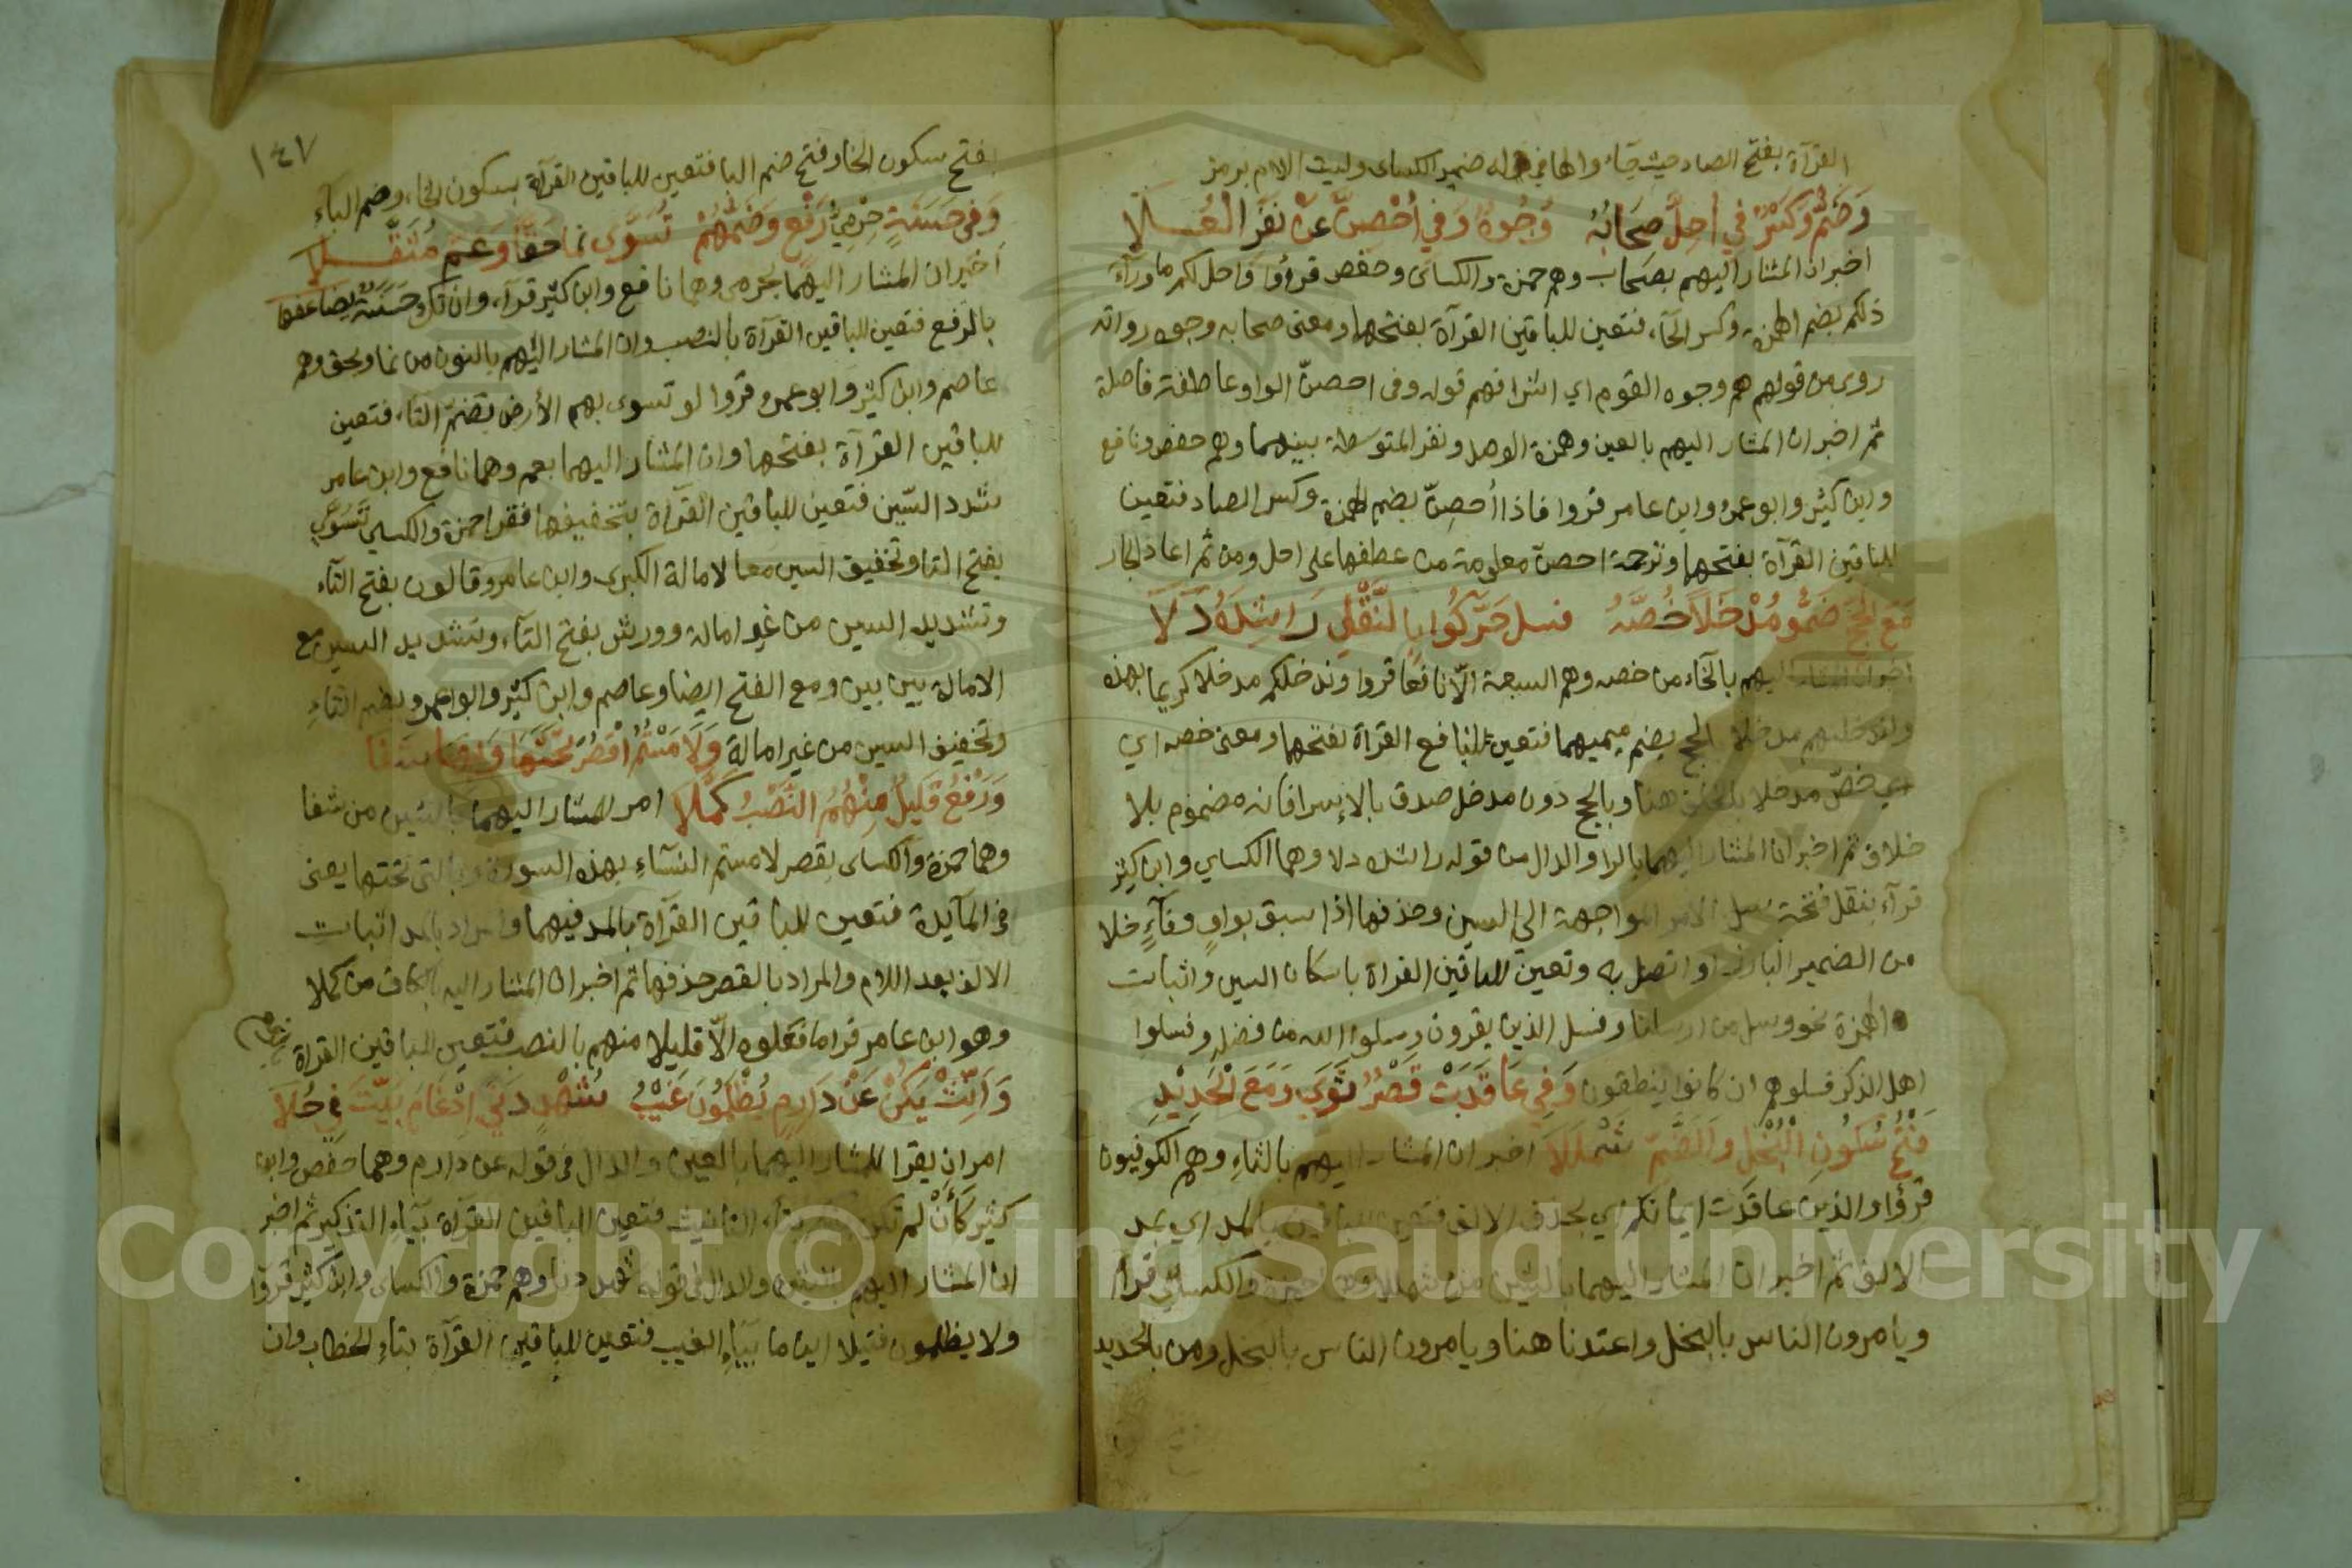 القرآة بفتح الصاد حيث جاء والها في له ضمير الكساى وليت الام برمز
وَضَمٌّ وَكَسْرٌ في أُحِلَّ صِحَابُهُ وُجُوهٌ وَفي أُحْصِنَّ عَنْ نَفَرِ الْعُــلَا
اخبر ان المشار اليهم بصحاب وهم حمزة والكساى وحفص قرؤا واحل لكم ما ورآء
ذلكم بضم الهمزة وكسر الحآء فتعين للباقين القرآة بفتحها ومعنى صحابه وجوه رواته
روى من قولهم هم وجوه القوم اي اشرافهم قوله وفى احصنّ الواو عاطفة فاصلة
ثم اخبر ان المشار اليهم بالعين وهمزة الوصل ونفر المتوسطة بينهما وهم حفص ونافع
وابن كيثر وابو عمرو وابن عامر قروا فاذا أحصِنّ بضم الهمزة وكسر الصاد فتعين
للباقين القرآة بفتحها وترجمة احصنّ معلومة من عطفها على احل ومن ثم اعاذ الجار
مَعَ الْحَجِّ ضَمُّو مُدْخَلًا خُصَّهُ فسل حَرَّكُوا بِالنَّقْلِ رَاشِدُهُ دَلَا
اخبر ان المشار اليهم بالخاء من خصه وهم السبعة الّا نافعا قروا وندخلكم مدخلا كريما بهذه
وليدخلنهم مدخلا بالحج بضم ميميهما فتعين لنافع القراة بفتحها ومعنى خصه اي
اي خصّ مدخلا بالخلف هنا وبالحج دون مدخل صدق بالإسرا فانه مضموم بلا
خلاف ثم اخبر ان المشار اليهما بالرا والدال من قوله راشده دلا وهما الكساي وابن كيثر
قرآء بنقل فتحة سل الامر المواجهة الى السين وحذفها اذا سبق بواوٍ وفآءٍ خلا
من الضمير البارز او اتصل به وتعين للباقين القراة باسكان السين واثبات
الهمزة نحو وسل من ارسلنا وفسل الذين يقرون وسلوا الله من فضله وفسلوا
اهل الذكر فسلوهم ان كانوا ينطقون وَفِي عَاقَدَتْ قَصْرٌ ثَوَى وَمَعَ الْحَدِيْدِ
فَتْحُ سُكُونِ الْبُخْلِ وَالضَّمِّ شَمْلَلَا اخبر ان المشار اليهم بالثاءِ وهم الكوفيون
قرؤا والذين عاقدت ايمانكم اي بحذف الالف فتعين للباقين بالمد اي بمد
الالف ثم اخبر ان المشار اليهما بالشين من شمللا وهما حمزة والكساي قرا
ويامرون الناس بالبخل واعتدنا هنا ويامرون الناس بالبخل ومن بالحديد
١٤٧
بفتح سكون الخا وفتح ضم البا فتعين للباقين القرآة بسكون الخاء وضم البآء
وَفي حَسَنَةٌ حِرْمِيُّ رَفْعٍ وَضَمُّهُمْ تَسَوَّى نَما حَقًّا وَعَمَّ مُثَقَّــلَا
اخبر ان المشار اليهما بحرمي وهما نافع وابن كثير قرآء وان تك حَسَنَةٌ يضاعفها
بالرفع فتعين للباقين القرآة بالنصب وان المشار اليهم بالنون من نما وبحق وهم
عاصم وابن كثير وابو عمرو قروا لو تسوى بهم الأرض بضم التآء فتعين
للباقين القرآة بفتحها وان المشار اليهما بعم وهما نافع وابن عامر
شدد السّين فتعين للباقين القرآة بتخفيفها فقرا حمزة والكساي تَسَوَّى
بفتح التا وتخفيف السين معا لامالة الكبرى وابن عامر وقالون بفتح التآء
وتشديد السين من غير امالة وورش بفتح التآء وتشديد السين مع
الامالة بين بين ومع الفتح ايضا وعاصم وابن كيثر وابو عمرو بضم التآءِ
وتخفيف السين من غير امالة وَلَامَسْتُمُ اقْصُرْ تَحْتَهَا وَبِهَا شَفَا
وَرَفْعُ قَلِيلٌ مِنْهُمُ النَّصْبُ كَلَّلَا امر للمشار اليهما بالشين من شفا
وهما حمزة والكساى بقصر لامستم النسآء بهذه السورة وبالتى تحتها يعنى
في المآيدة فتعين للباقين القرآة بالمد فيهما والمراد بالمد اثبات
الالف بعد اللام والمراد بالقصر حذفها ثم اخبر ان المشار اليه بالكاف من كللا
وهو ابن عامر قرا ما فعلوه الّا قليلا منهم بالنصب فتعين للباقين القراة
وَأَنِّثْ يَكُنْ عَنْ دَارِمٍ يُظْلَمُونَ غَيْبُ شُهْدٍ دَنَى إِدْغَامُ بَيَّتَ فِي حُلَا
امر ان يقرا للمشار اليهما بالعين والدال في قوله عن دارم وهما حفص وابن
كثير كَأَنْ لم تكن بتآء التانيث فتعين للباقين القرآة بيآء التذكير ثم اخبر
ان المشار اليهم بالشين والدال في قوله شهد دنا وهم حمزة والكساى وابن كثير قروا
ولا يظلمون فتيلا اين ما بيآء الغيب فتعين للباقين القرآة بتاءِ الخطاب وان
Copyright © King Saud University